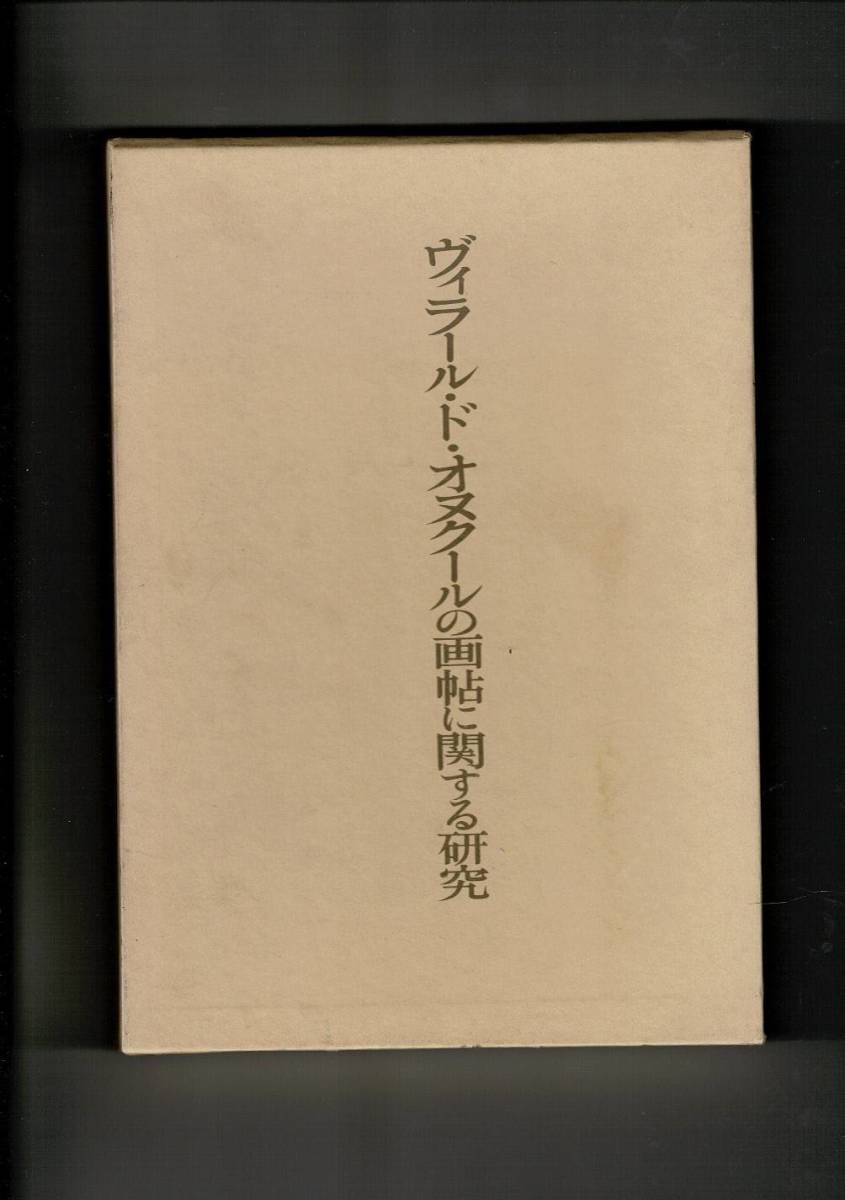 ヴィラール・ド・オヌクールの画帖に関する研究